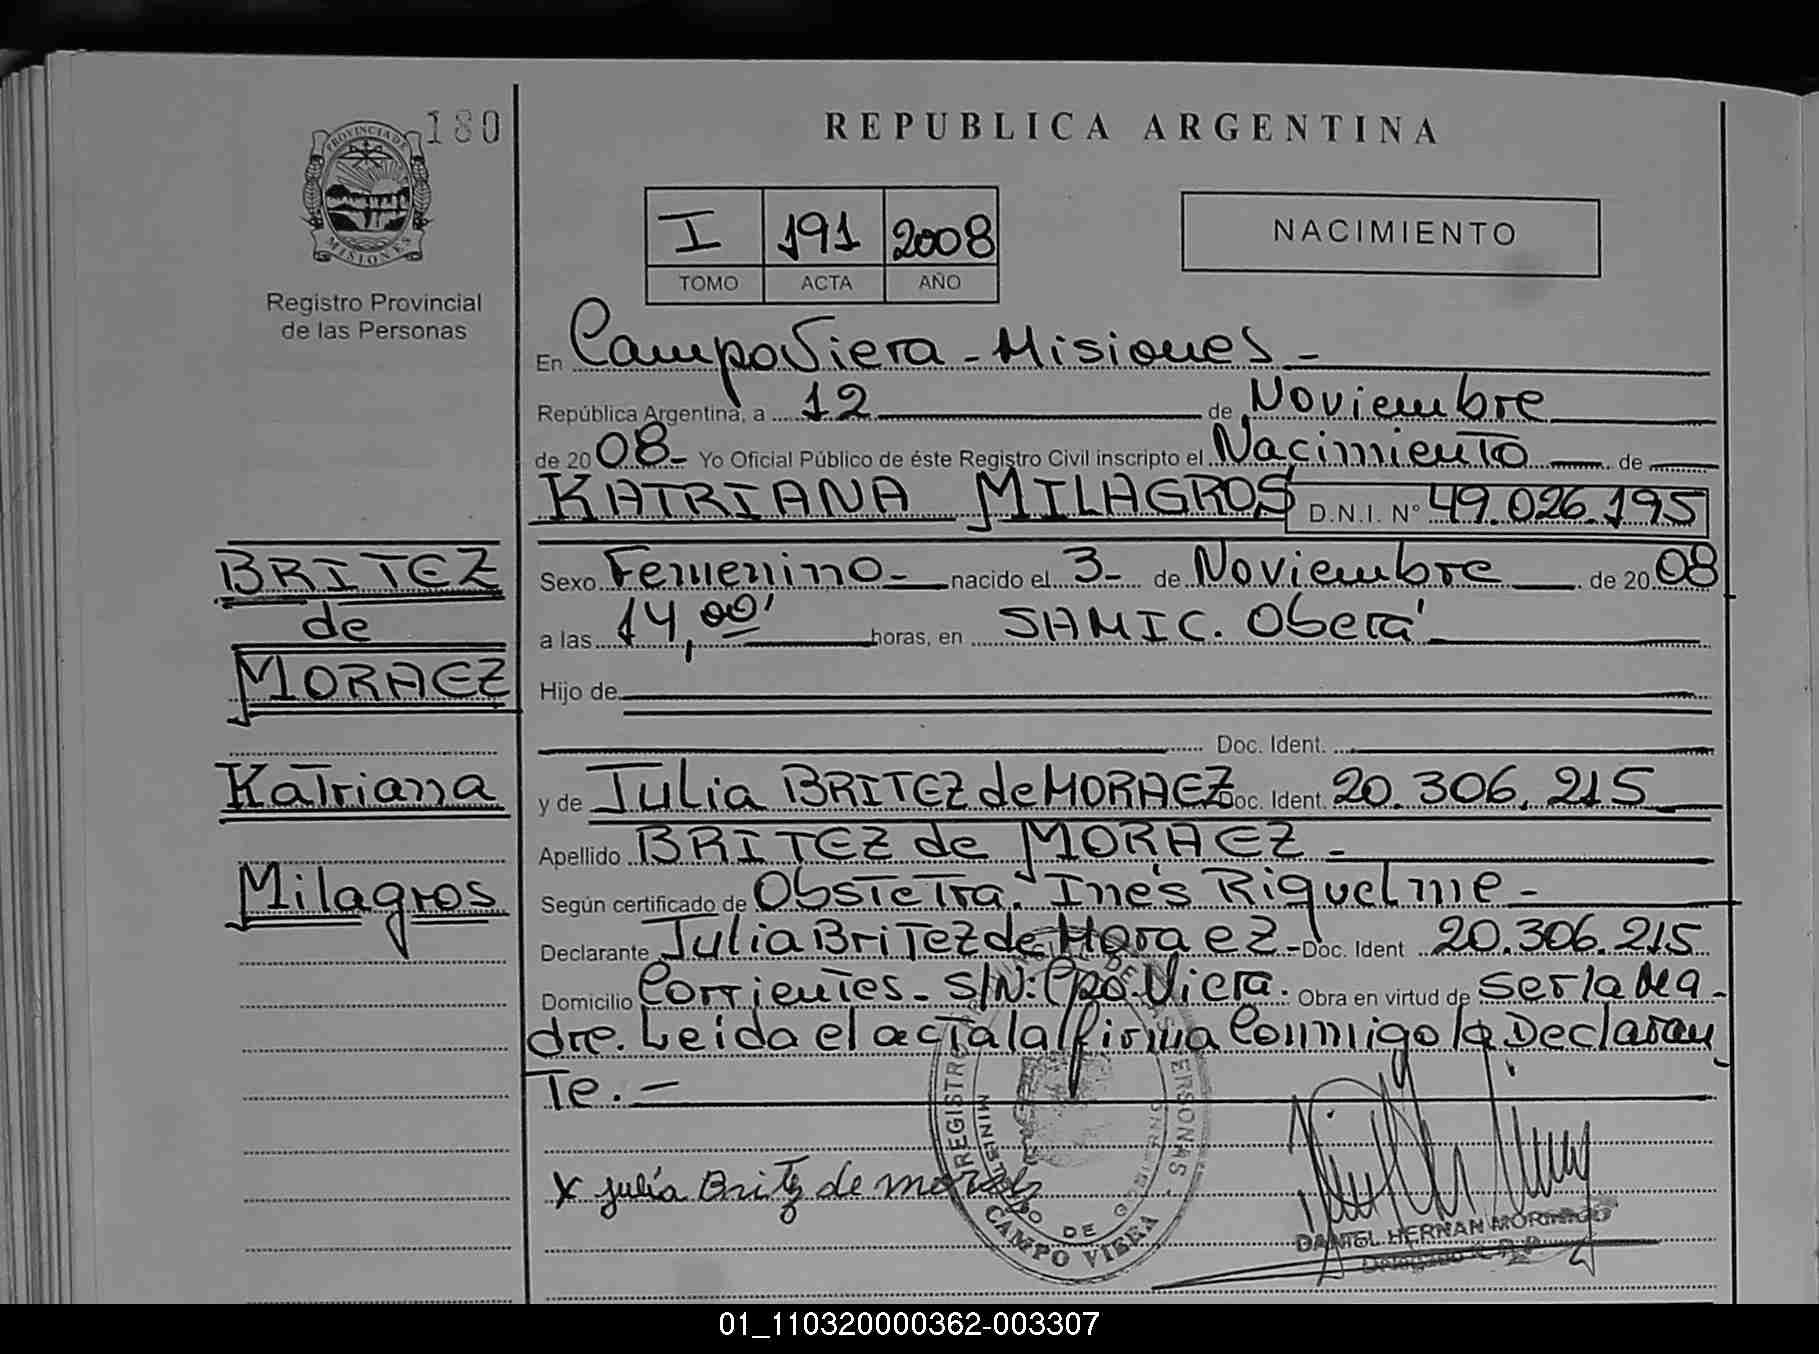 180
PROVINCIA DE
MISIONES
Registro Provincial
de las Personas
REPUBLICA ARGENTINA
I 191 2008
TOMO ACTA AÑO
NACIMIENTO
En Campo Viera - Misiones -
República Argentina, a 12 de Noviembre
de 2008- Yo Oficial Público de éste Registro Civil inscripto el Nacimiento de
KATRIANA MILAGROS D.N.I. N° 49.026.195
BRITEZ
de
MORAEZ
Katriana
Milagros
Sexo Femenino- nacido el 3- de Noviembre de 2008
a las 14,00' horas, en SAMIC. Oberá
Hijo de
Doc. Ident.
y de Julia BRITEZ de MORAEZ Doc. Ident. 20.306.215
Apellido BRITEZ de MORAEZ -
Según certificado de Obstetra. Inés Riquelme -
Declarante Julia Britez de Moraez - Doc. Ident 20.306.215
Domicilio Corrientes - S/N: Cpo. Viera. Obra en virtud de ser la Ma-
dre. Leida el acta la firma Conmigo la Declaran
Te. -
x julia Britz de moraez
CAMPO VIERA
DANIEL HERNAN MORINIGO
01_110320000362-003307